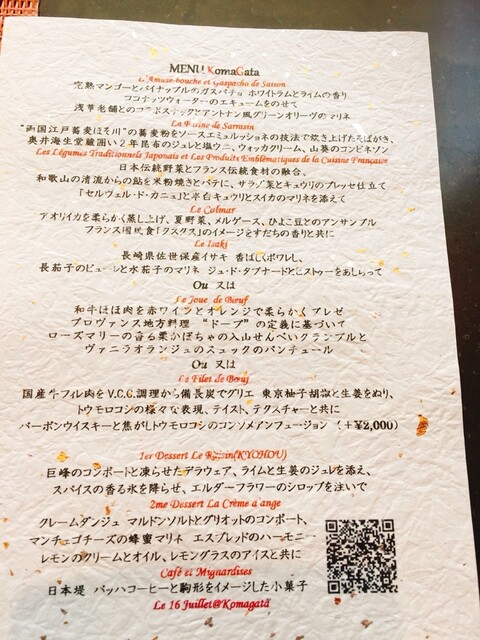 MENU KomaGata
L'Amuse-bouche et Gaspacho de Saison
完熟マンゴーとパイナップルのガスパチョ ホワイトラムとライムの香り
ココナッツウォーターのエキュームをのせて
浅草老舗とのコラボスナックとアントナン風グリーンオリーヴのマリネ
La Farine de Sarrasin
"両国江戸蕎麦ほそ川"の蕎麦粉をソースエミュルッショネの技法で炊き上げたそばがき、
奥井海生堂蔵囲い2年昆布のジュレと塩ウニ、ウォッカクリーム、山葵のコンビネゾン
Les Légumes Traditionnels Japonais et Les Produits Emblématiques de la Cuisine Française
日本伝統野菜とフランス伝統食材の融合、
和歌山の清流からの鮎を米粉焼きとパテに、サラダ菜とキュウリのブレッセ仕立て
「セルヴェル・ド・カニュ」と半白キュウリとスイカのマリネを添えて
Le Calmar
アオリイカを柔らかく蒸し上げ、夏野菜、メルゲース、ひよこ豆とのアンサンブル
フランス国民食「クスクス」のイメージをすだちの香りと共に
Le Isaki
長崎県佐世保産イサキ 香ばしくポワレし、
長茄子のピューレと水茄子のマリネ ジュ・ド・タプナードとピストゥーをあしらって
Ou 又は
Le Joue de Bœuf
和牛ほほ肉を赤ワインとオレンジで柔らかくブレゼ
プロヴァンス地方料理 "ドーブ"の定義に基づいて
ローズマリーの香る栗かぼちゃの入山せんべいクランブルと
ヴァニラオランジュのスュックのパンチュール
Ou 又は
Le Filet de Bœuf
国産牛フィレ肉をV.C.C.調理から備長炭でグリエ 東京柚子胡椒と生姜をぬり、
トウモロコシの様々な表現、テイスト、テクスチャーと共に
バーボンウイスキーと焦がしトウモロコシのコンソメアンフュージョン (+¥2,000)
1er Dessert Le Raisin(KYOHOU)
巨峰のコンポートと凍らせたデラウェア、ライムと生姜のジュレを添え、
スパイスの香る氷を降らせ、エルダーフラワーのシロップを注いで
2me Dessert La Crème d'ange
クレームダンジュ マルドンソルトとグリオットのコンポート、
マンチェゴチーズの蜂蜜マリネ エスプレッドのハーモニー
レモンのクリームとオイル、レモングラスのアイスと共に
Café et Mignardises
日本堤 バッハコーヒーと駒形をイメージした小菓子
Le 16 Juillet@Komagata